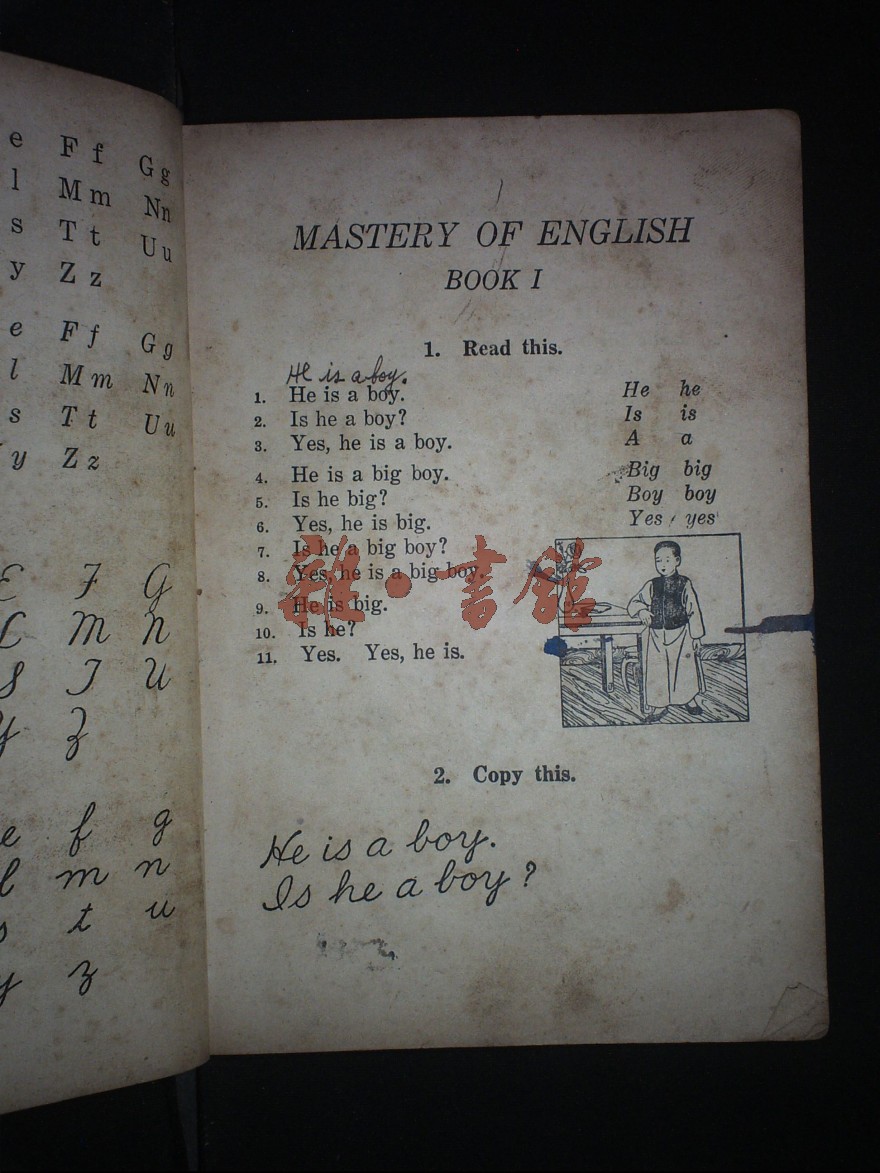 e F f G g
l M m N n
s T t U u
y Z z
e F f G g
l M m N n
s T t U u
y Z z
E F G
L M N
S T U
Y Z
e f g
l m n
s t u
y z
MASTERY OF ENGLISH
BOOK I
1. Read this.
He is a boy.
1. He is a boy. He he
2. Is he a boy? Is is
3. Yes, he is a boy. A a
4. He is a big boy. Big big
5. Is he big? Boy boy
6. Yes, he is big. Yes yes
7. Is he a big boy?
8. Yes, he is a big boy.
雜·書館
9. He is big.
10. Is he?
11. Yes. Yes, he is.
2. Copy this.
He is a boy.
Is he a boy?